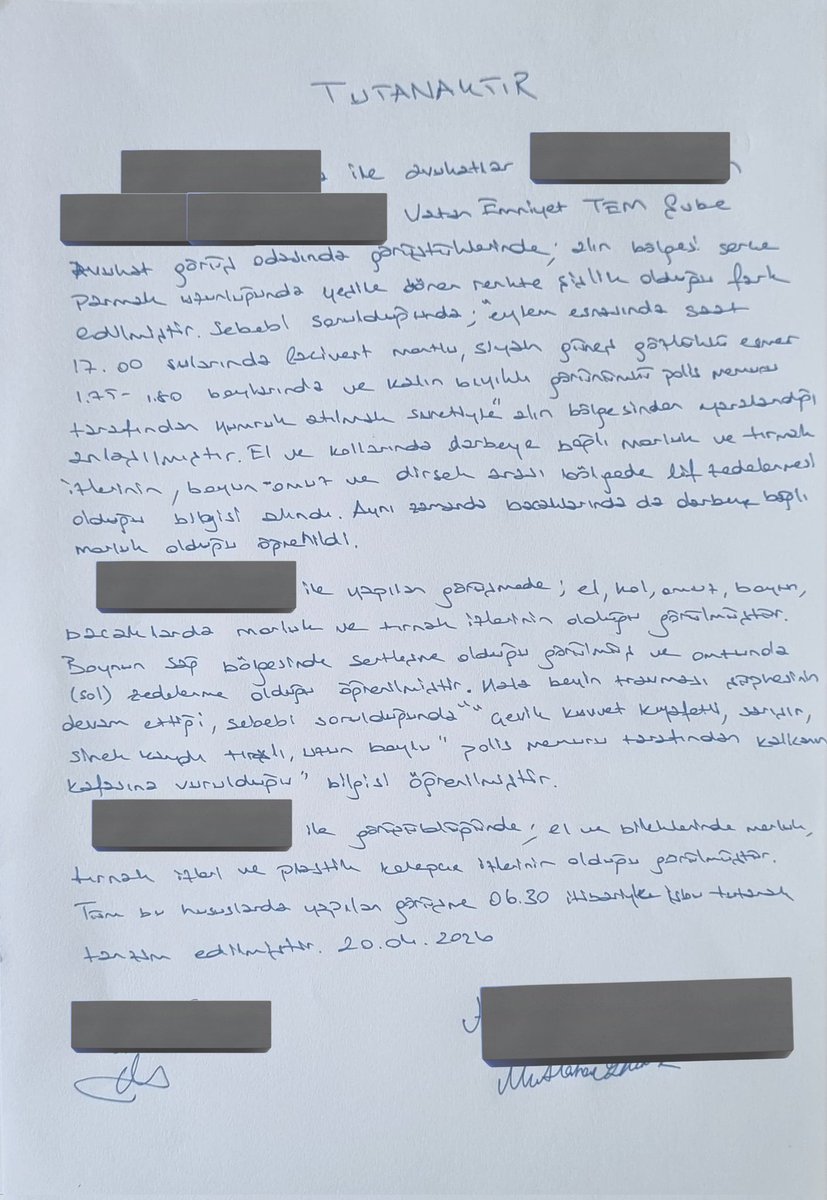 TUTANAKTIR
ile avukatlar
Vatan Emniyet TEM Şube
Avukat görüş odasında görüştüklerinde; alın bölgesi serçe
parmak uzunluğunda yeşile dönen renkte şişlik olduğu fark
edilmiştir. Sebebi sorulduğunda; "eylem esnasında saat
17.00 sularında lacivert montlu, siyah güneş gözlüklü esmer
1.75-1.80 boylarında ve kalın bıyıklı görünümlü polis memuru
tarafından yumruk atılmak suretiyle" alın bölgesinden yaralandığı
anlaşılmıştır. El ve kollarında darbeye bağlı morluk ve tırnak
izlerinin, boyun-omuz ve dirsek arası bölgede lif zedelenmesi
olduğu bilgisi alındı. Aynı zamanda bacaklarında da darbeye bağlı
morluk olduğu öğrenildi.
ile yapılan görüşmede; el, kol, omuz, boyun,
bacaklarda morluk ve tırnak izlerinin olduğu görülmüştür.
Boynun sağ bölgesinde sertleşme olduğu görülmüş ve omzunda
(sol) zedelenme olduğu öğrenilmiştir. Hala beyin travması şüphesinin
devam ettiği, sebebi sorulduğunda "" Çevik kuvvet kıyafetli, sarışın,
sinek kaydı tıraşlı, uzun boylu" polis memuru tarafından kalkanın
kafasına vurulduğu" bilgisi öğrenilmiştir.
ile görüşüldüğünde; el ve bileklerinde morluk,
tırnak izleri ve plastik kelepçe izlerinin olduğu görülmüştür.
Tüm bu hususlarda yapılan görüşme 06.30 itibariyle işbu tutanak
tanzim edilmiştir. 20.04.2026